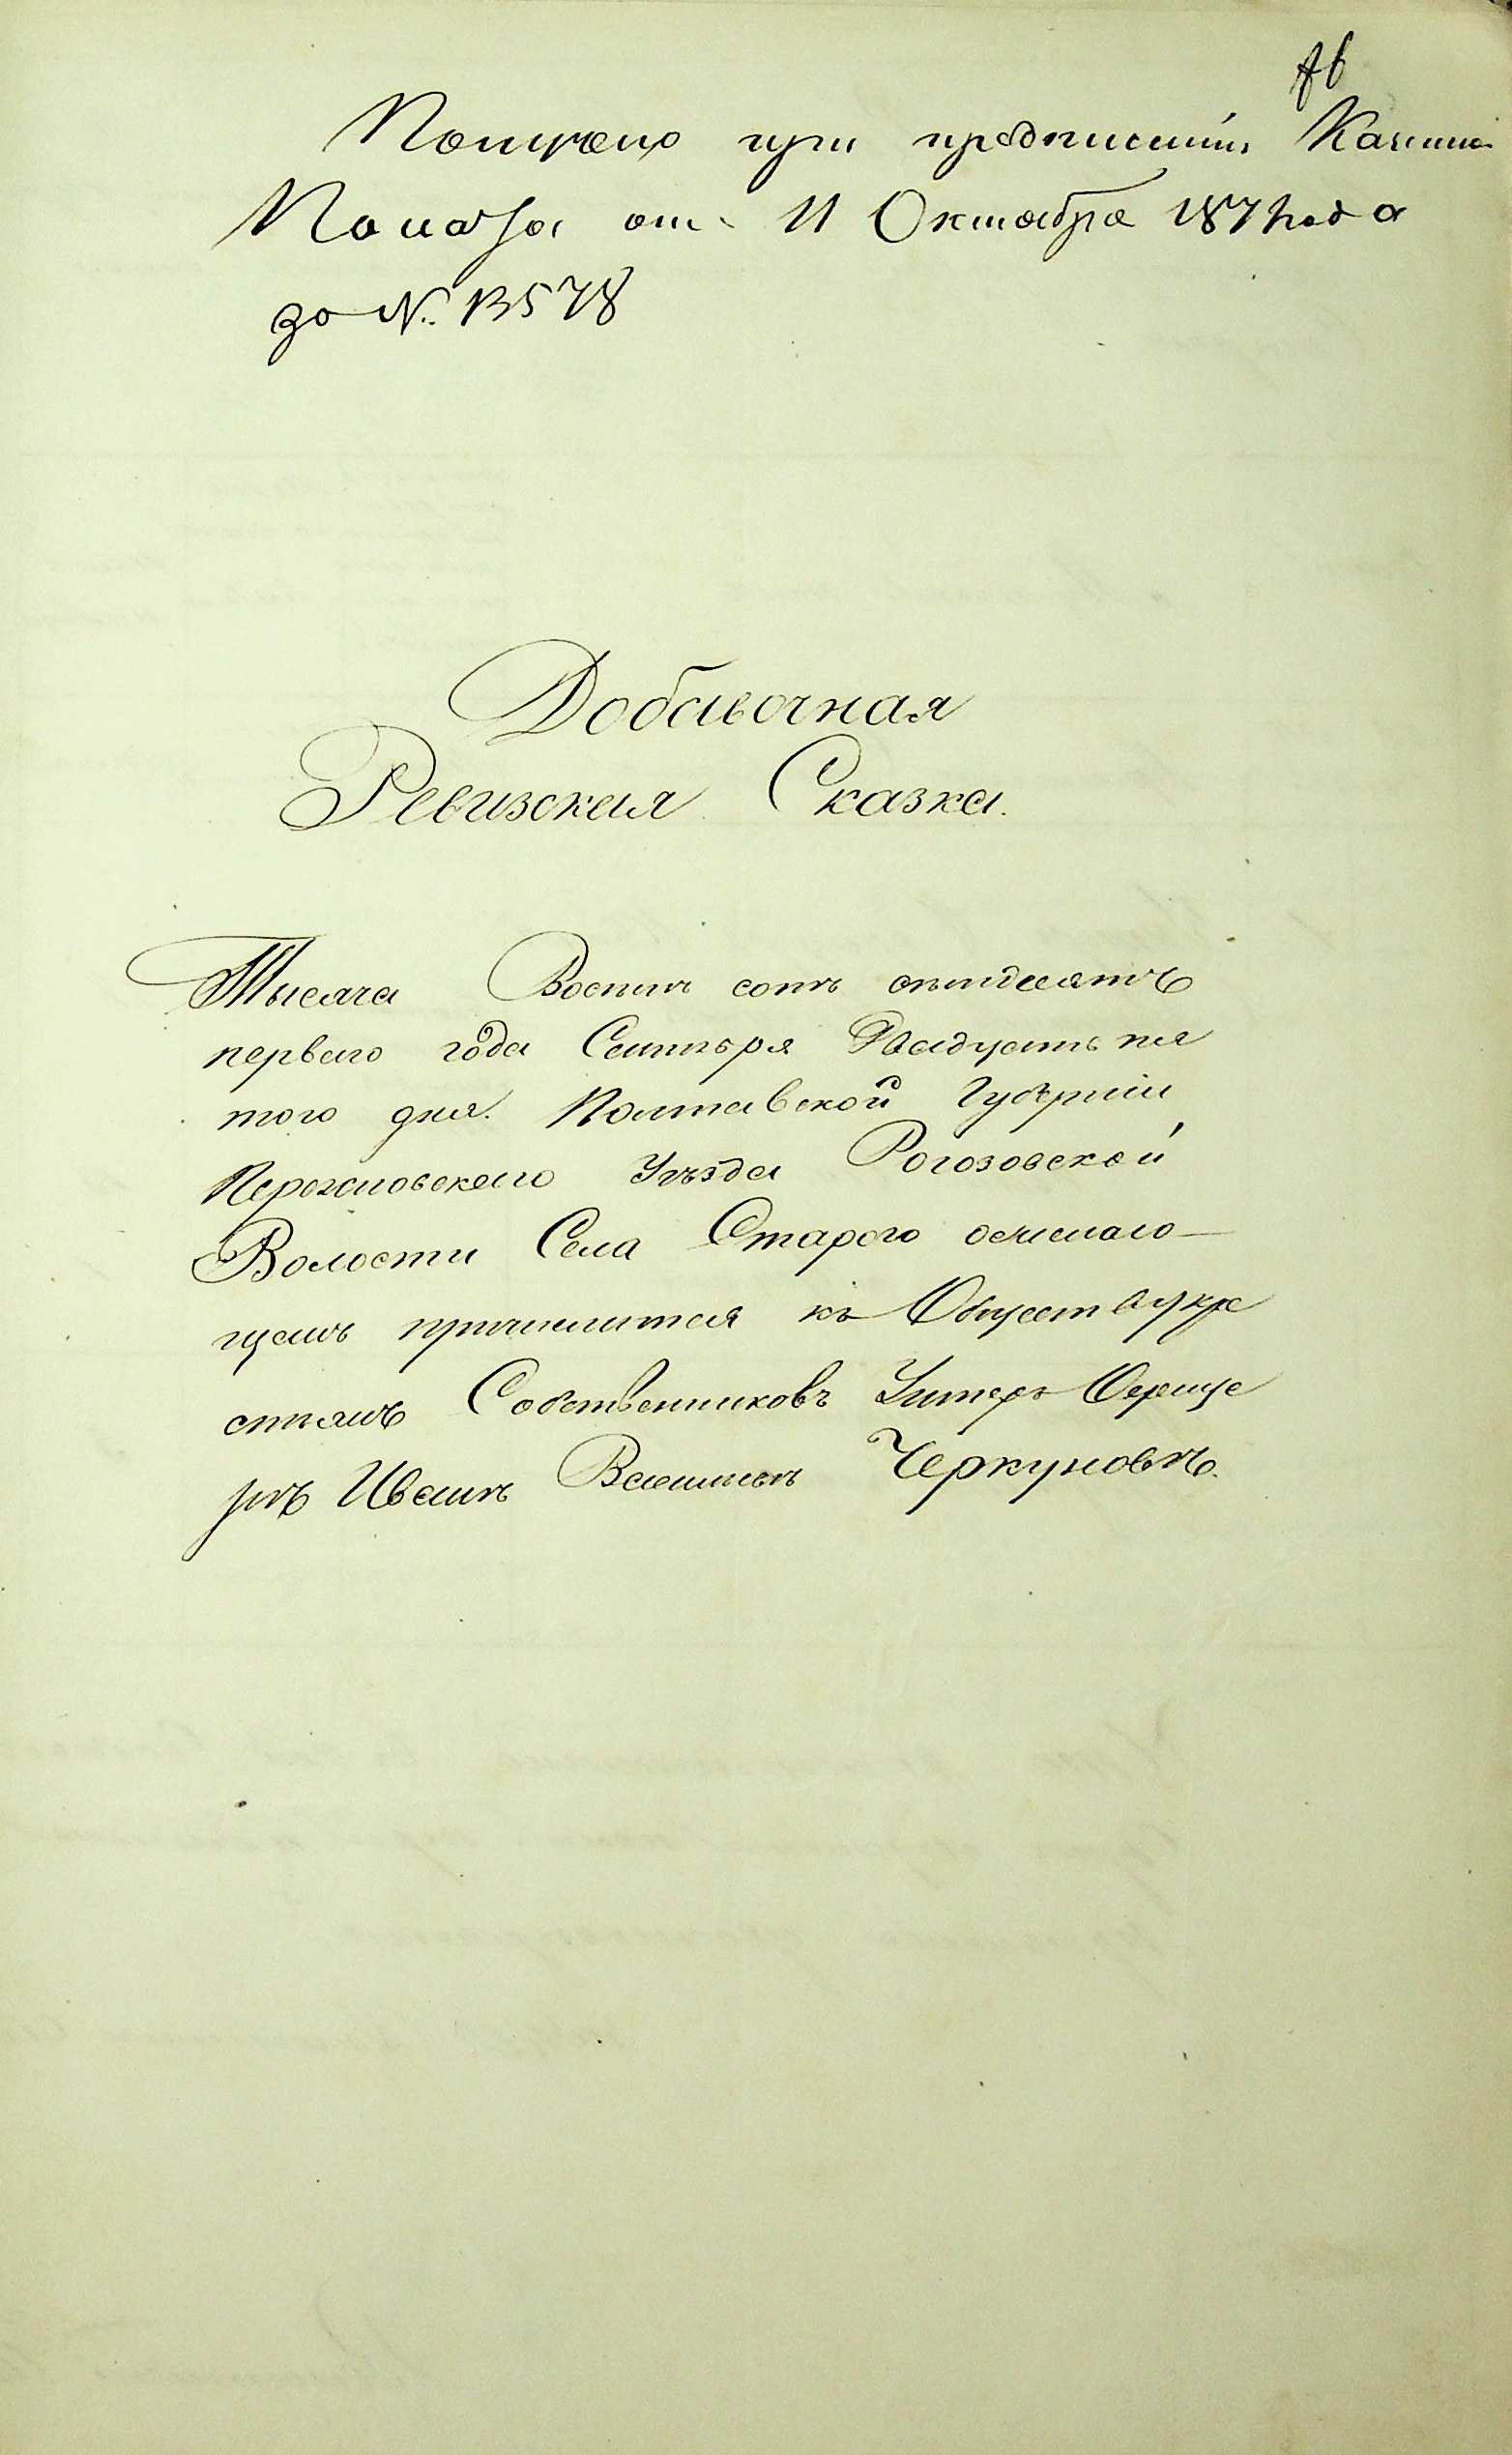 Получено при предписанiи Казенной
Палаты от 11 Октября 187 года
за N. 13578
Добавочная
Ревизская Сказка.
Тысяча Восемъ сотъ семидесятъ
первого года Сентября Двадцать пя
того дня. Полтавской Губернiи
Переяславского Уѣзда Рогозовской
Волости Села Старого о
щемъ причислится къ Обществу кре
стьянъ Собственниковъ Унтеръ Офице
рѣ Иванѣ Черкуновѣ.